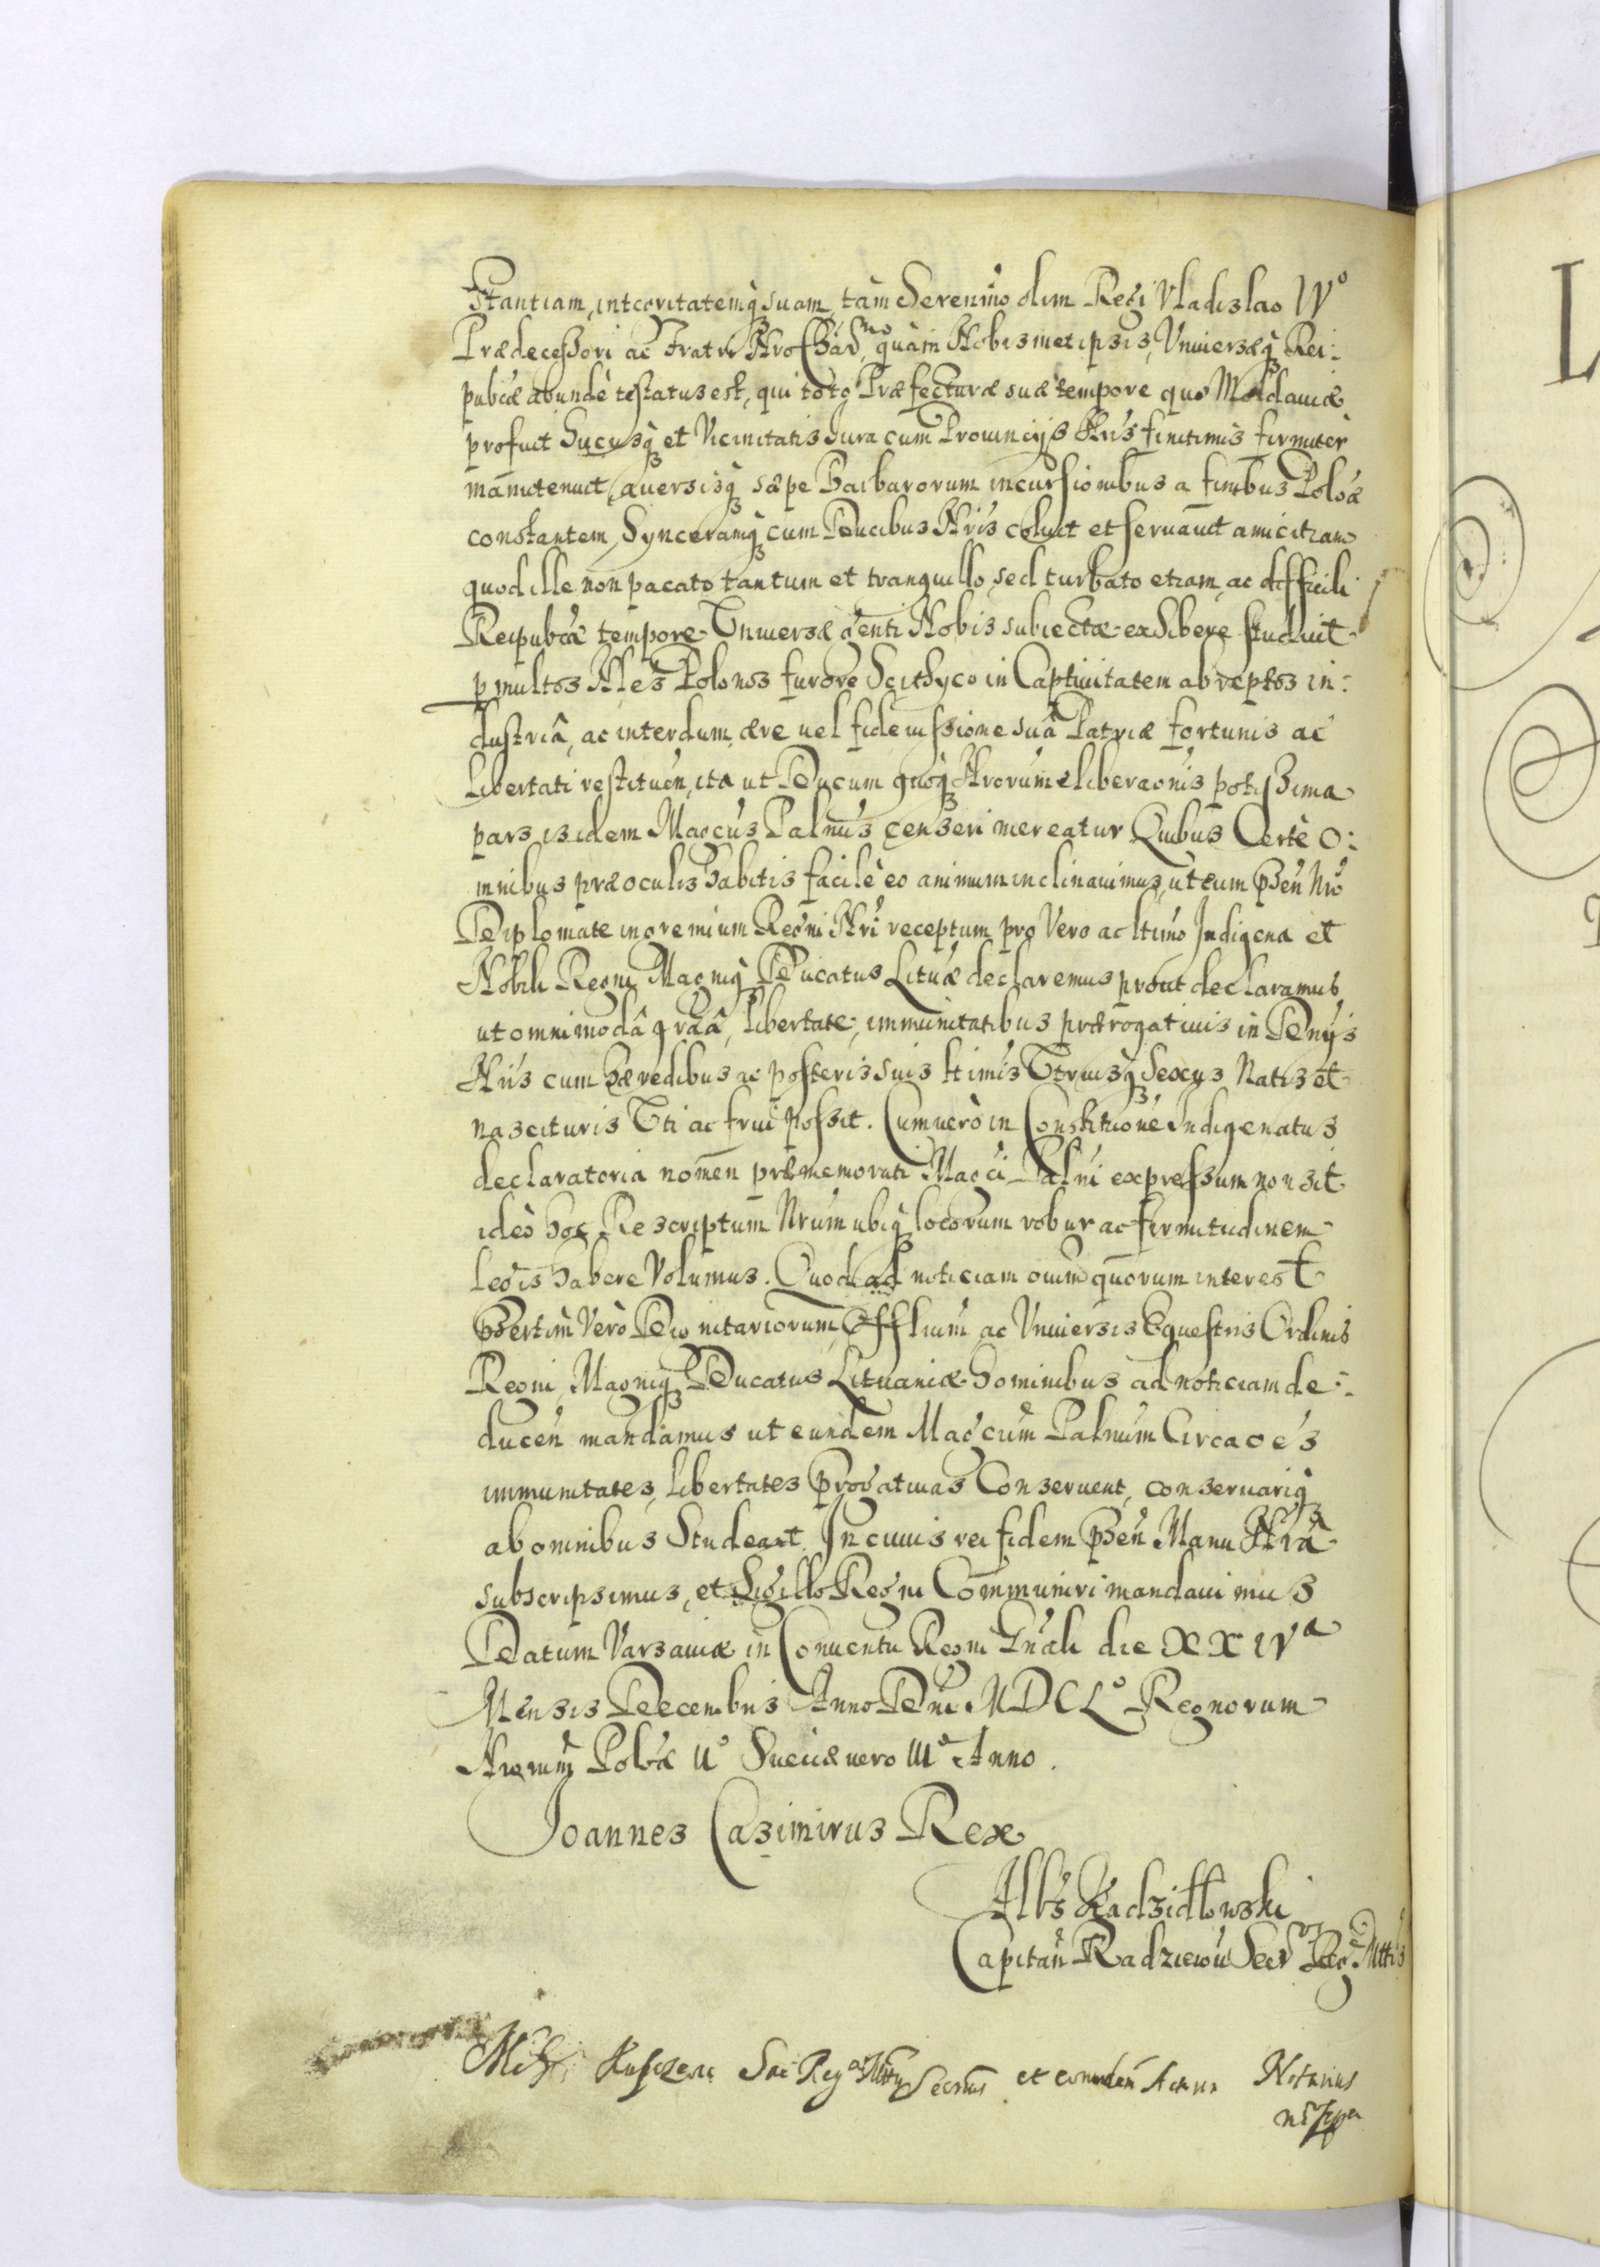 stantiam, integritatemq suam, tàm Serenmo olim Regi Vladislao IVo
Prædecessori ac Fratri Nro quàm Nobismetipsis, Vniversæq Rei:
pubcæ abundè testatus est, qui toto Præfecturæ suæ tempore quo Moldaviæ
profuit hucusq et Vicinitatis Jura cum Provincijs Nris finitimis firmiter
manutenuit, aversisq sæpe Barbarorum incursionibus a finibus Polœ
constantem, Synceramq cum Ducibus Nris coluit et servavit amicitiam
quod ille non pacato tantum et tranquillo, sed turbato etiam, ac difficili
Reipubcæ tempore Vniversæ Genti Nobis subiectæ exhibere studuit
p multos Nles Polonos furore Scithyco in Captivitatem abreptos in:
dustriâ, ac interdum ære vel fideiussione suâ Patriæ fortunis ac
Libertati restituen, ita ut Ducum quoq Nrorum eliberaonis potissima
pars isidem Magcus Palnus censeri mereatur Quibus Certè o:
mnibus præ oculis habitis facilè eo animum inclinavimus, ut eum Psen Nro
Diplomate in gremium Regni Nri receptum pro Vero ac ltimo Indigena et
Nobili Regni Magniq Ducatus Lituæ declaremus prout declaramus
ut omnimodâ graâ, libertate, immunitatibus prærogativis in Dnijs
Nris cum hæredibus ac posteris suis ltimis Vtriusq Sexus Natis et
nascituris Vti ac frui possit. Cum verò in Constitutione Indigenatus
declaratoria nomen præmemorati Magci Palni expressum non sit
ideò hoc Rescriptum Nrum ubiq locorum robur ac firmitudinem
legis habere Volumus. Quod ad noticiam oium quorum interest
Psertim Verò Dignitariorum, Offlium ac Vniversis Equestris Ordinis
Regni, Magniq Ducatus Lituaniæ hominibus ad noticiam de:
ducen mandamus ut eundem Magcum Palnum Circa oes
immunitates, libertates Progativas Conservent, conservariq
ab omnibus Studeant. In cuius rei fidem Psen Manu Nra
subscripsimus, et Sigillo Regni Communiri mandavimus
Datum Varsaviæ in Conventu Regni Gnali die XXIVa
Mensis Decembris Anno Dni MDCLo Regnorum
Nrorum Polœ IIo Sueciæ vero IIIo Anno.
Joannes Casimirus Rex
Albs Kadzidłowski
Capitan Radziewu Secr Reg Mttis
Mich: Sac Reg Mttis Secrius et Notarius